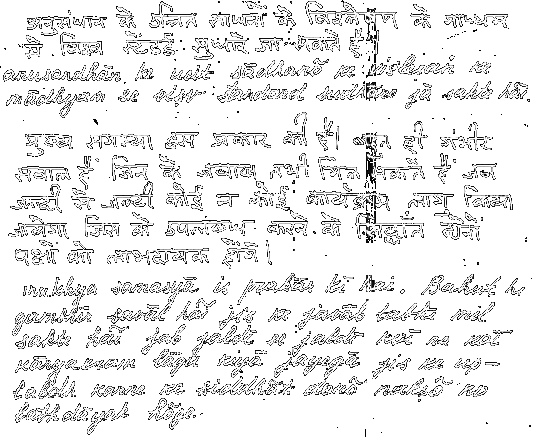 अनुसंधान के उचित साधनों के विश्लेषण के माध्यम
से विश्व स्टैंडर्ड सुधारे जा सकते हैं।
anusandhān ke ucit sādhanō ke visleṣaṇ ke
mādhyam se visv standard sudhāre jā sakte hāi.
मुख्य समस्या इस प्रकार की है। बहुत ही गंभीर
सवाल हैं जिन के जवाब तभी मिल सकते हैं जब
जल्दी से जल्दी कोई न कोई कार्यक्रम लागू किया
जायेगा जिस के उपलब्ध करने के सिद्धांत दोनों
पक्षों को लाभदायक होंगे।
mukhya samasyā is prakār kī hai. Bahut hī
gambhīr savāl hāi jis ke javāb tabhī mil
sakte hāi jab jaldī se jaldī kōī na kōī
kāryakram lāgū kiyā jāyegā jis ke up-
labdh karne ke siddhāt dōnō pakṣō kō
labhdāyak hōge.